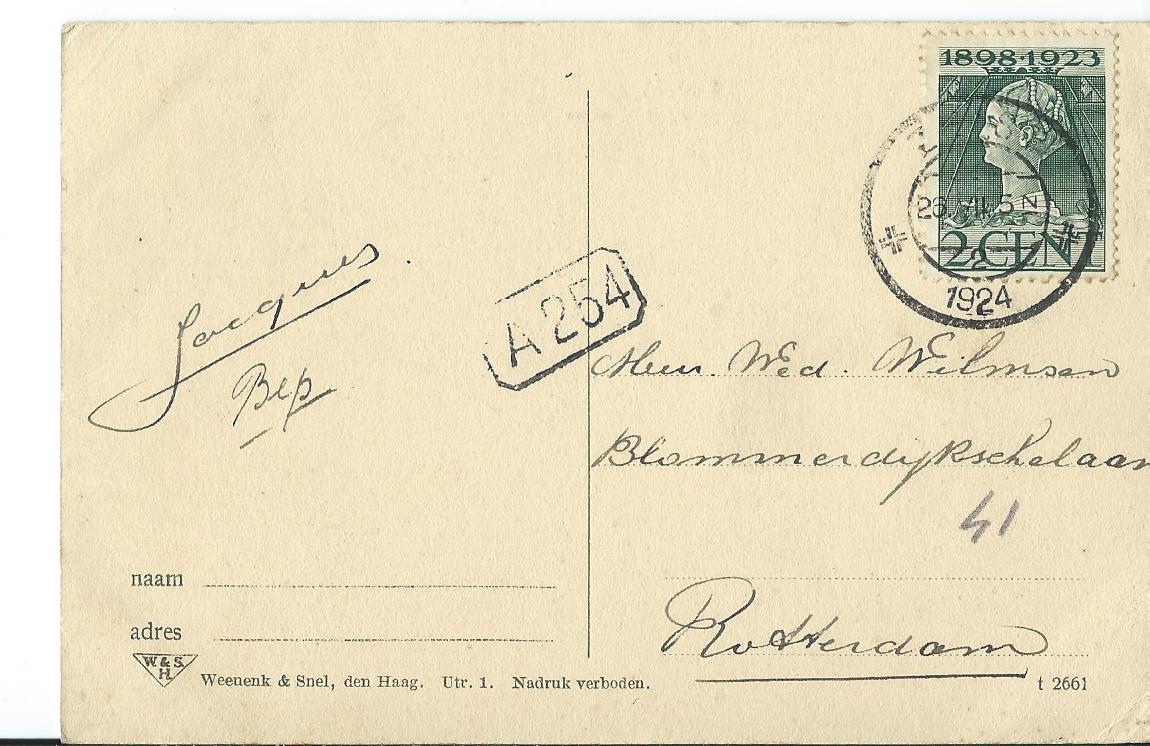 1898·1923
2 CENT
26.VII 5 N
2
1924
Jacques
Bep
A 254
Mevr. Wed. Wilmsen
Blommerdijkschelaan
41
Rotterdam
naam
adres
W. & S.
H.
Weenenk & Snel, den Haag. Utr. 1. Nadruk verboden.
t 2661